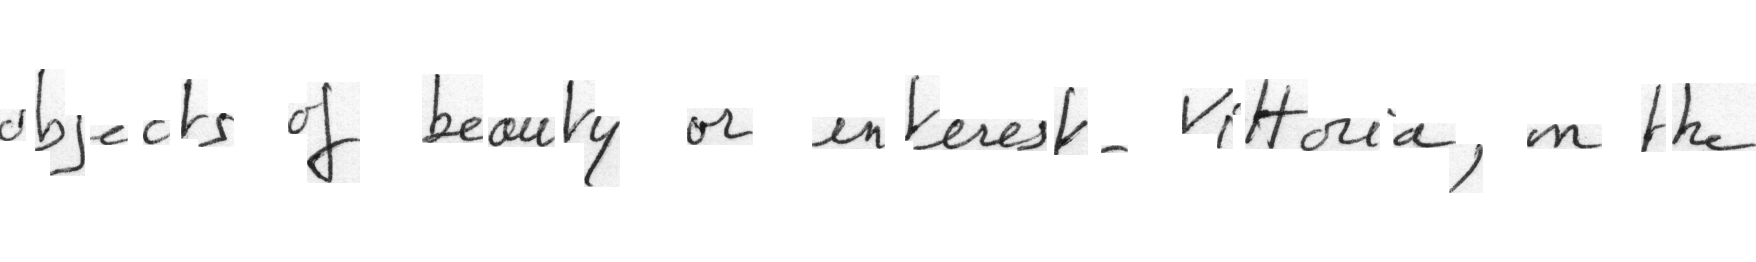 objects of beauty or interest. Vittoria, on the